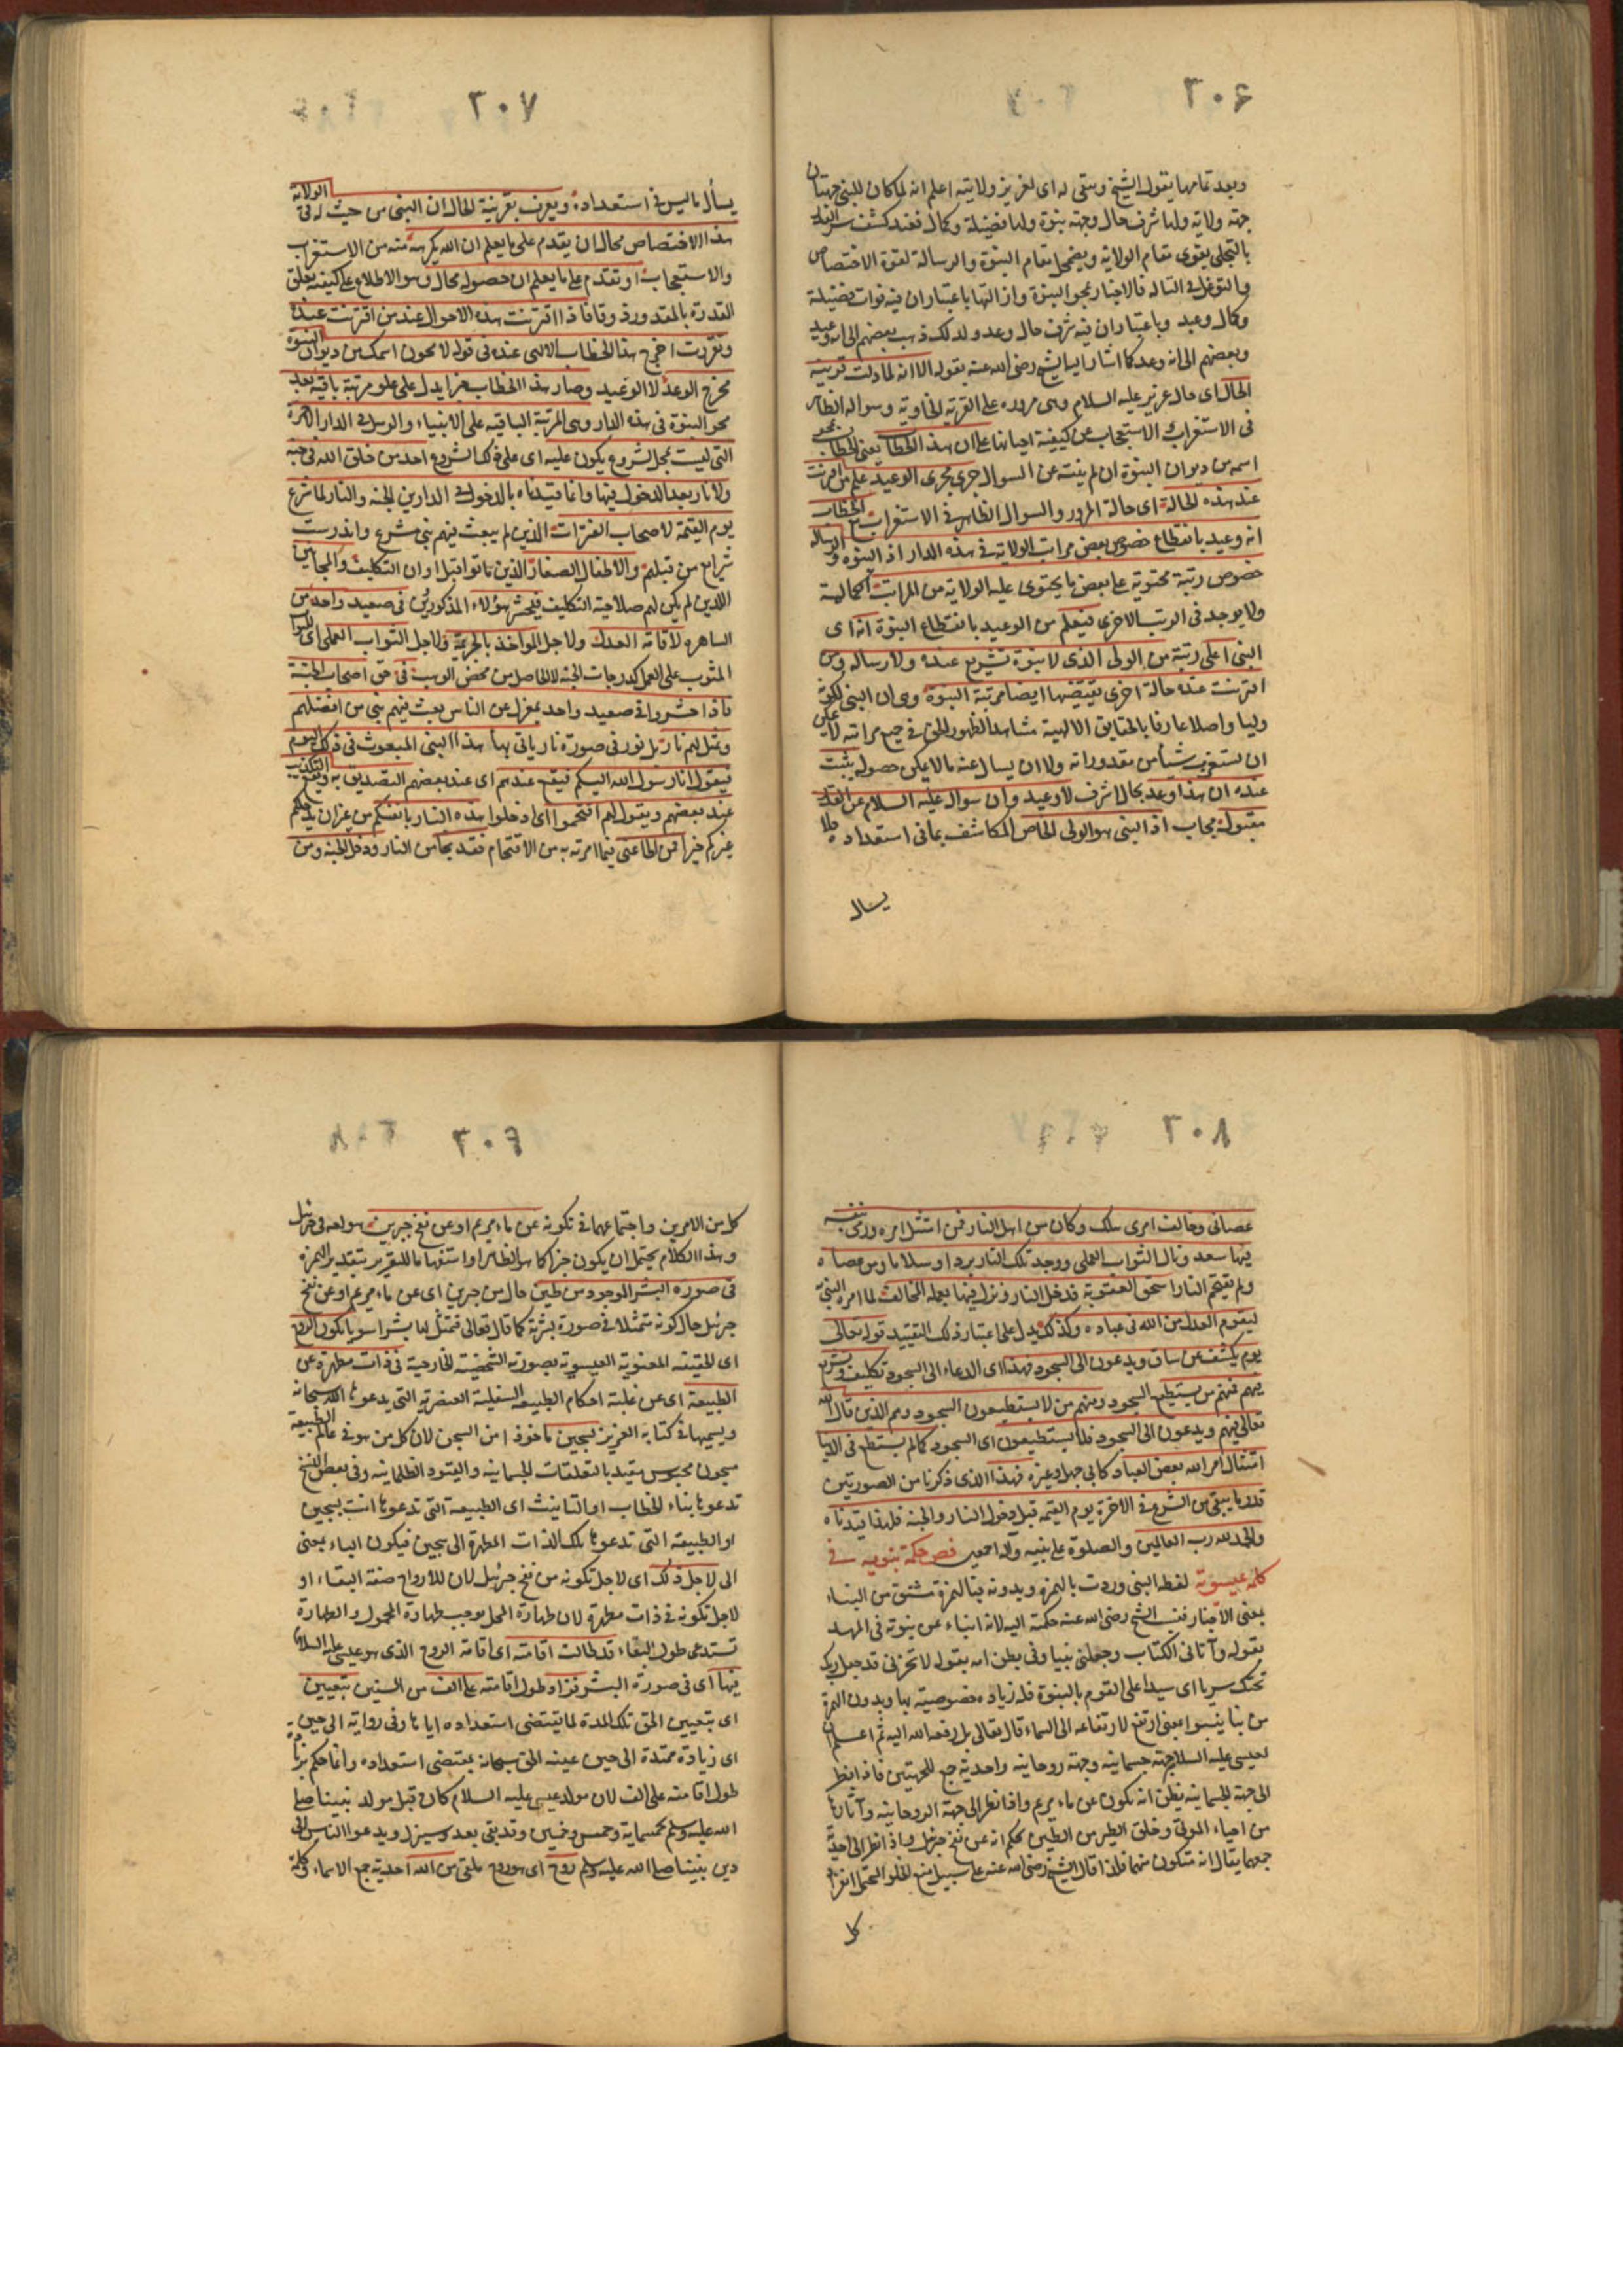 ٢٠٦
وبعد تمامها يقول الشيخ ويبقى له اى لعزير ولايته اعلم انه لما كان للنبى جهتان
جهة ولاية ولها شرف حال وجهة نبوة ولها فضيلة وكمال فعند كشف سر القدر
بالتجلى يقوى مقام الولاية ويضمحل مقام النبوة والرسالة لقوة الاختصاص
والتوغل فى التاله فالاخبار بمحو النبوة وازالتها باعتبار ان فيه فوات فضيلة
وكمال وعيد وباعتبار ان فيه شرف حال وعد ولذلك ذهب بعضهم الى انه وعيد
وبعضهم الى انه وعد كما اشار اليه الشيخ رضى الله عنه بقوله الا انه لما دلت قرينة
الحال اى حال عزير عليه السلام وهى مروره على القرية الخاوية وسواله الظاهر
فى الاستغراب الاستعجاب عن كيفية احيائها على ان هذا الخطاب يعنى الخطاب بمحو
اسمه من ديوان النبوة ان لم ينته عن السوال جرى مجرى الوعيد علم من اقترنت
عنده هذه الحالة اى حالة المرور والسوال الظاهر فى الاستغراب مع الخطاب
انه وعيد بانقطاع خصوص بعض مراتب الولاية فى هذه الدار اذ النبوة والرسالة
خصوص رتبة محتوية على بعض ما يحتوى عليه الولاية من المراتب الكمالية
ولا يوجد فى الرتب الاخرى فيعلم من الوعيد بانقطاع النبوة انه اى
النبى اعلى رتبة من الولى الذى لا نبوة تشريع عنده ولا رسالة ومن
اقترنت عنده حالة اخرى يقتضيها ايضا مرتبة النبوة وهى ان النبى لكونه
وليا واصلا عارفا بالحقايق الالهية مشاهدا لظهور الحق فى جميع مراتبه لا يمكن
ان يستغرب شيأ من مقدوراته ولا ان يسال عنه ما لا يمكن حصوله يثبت
عنده ان هذا وعد بحال اشرف لا وعيد وان سوال عليه السلام عن القدر
مقبول مجاب اذ النبى هو الولى الخاص المكاشف بما فى استعداده فلا
يسال
٢٠٧
يسأل ما ليس فى استعداده ويعرف بقرينة الحال ان النبى من حيث له فى الولاية
هذا الاختصاص محال ان يقدم على ما يعلم ان الله يكرهه منه من الاستغراب
والاستعجاب او تقدم على ما يعلم ان حصوله محال وهو الاطلاع على كيفية تعلق
القدرة بالمقدور ذوقا فاذا اقترنت هذه الاحوال عند من اقترنت عنده
وتقررت اخرج هذا الخطاب الالهى عنده فى قوله لا محون اسمك من ديوان النبوة
مخرج الوعد لا الوعيد وصار هذا الخطاب خبرا يدل على علو مرتبة باقية بعد
محو النبوة فى هذه الدار وهى المرتبة الباقية على الانبياء والرسل فى الدار الاخرة
التى ليست بمحل لشرع يكون عليه اى على ذلك الشرع احد من خلق الله فى جنة
ولا نار بعد الدخول فيهما وانما قيدناه بالدخول فى الدارين الجنة والنار لما شرع
يوم القيمة لاصحاب الفترات الذين لم يبعث فيهم نبى مشرع واندرست
شرايع من قبلهم والاطفال الصغار الذين ماتوا قبل اوان التكليف والمجانين
الذين لم يكن لهم صلاحية التكليف فيحشر هؤلاء المذكورين فى صعيد واحد من
الساهره لاقامة العدل ولاجل المواخذ بالجريمة ولاجل الثواب العملى اى للثواب
المثوب على العمل كدرجات الجنة لا الحاصل من محض الوهب فى حق اصحاب الجنة
فاذا حشروا فى صعيد واحد بمعزل عن الناس بعث فيهم نبى من افضلهم
وتمثل لهم نار بل نور فى صورة نار ياتى بها هذا النبى المبعوث فى ذلك اليوم
فيقول انا رسول الله اليكم فيقع عندهم اى عند بعضهم التصديق به ويقع التكذيب
عند بعضهم ويقول لهم اقتحموا اى ادخلوا هذه النار بانفسكم من غير ان يدخلكم
غيركم فيها فمن اطاعنى فيما امرته به من الاقتحام فقد نجا من النار ودخل الجنة ومن
٢٠٨
عصانى وخالف امرى هلك وكان من اهل النار فمن امتثل امره ورمى بنفسه
فيها سعد ونال الثواب العملى ووجد تلك النار بردا وسلاما ومن عصاه
ولم يقتحم النار استحق العقوبة فدخل النار ونزل فيها بعمله المخالف لما امره النبى
ليقوم العدل من الله فى عباده وكذلك يدل على اعتبار ذلك التقييد قوله تعالى
يوم يكشف عن ساق ويدعون الى السجود فهذا اى الدعاء الى السجود تكليف وتشريع
فيهم فمنهم من يستطيع السجود ومنهم من لا يستطيعون السجود وهم الذين قال الله
تعالى فيهم ويدعون الى السجود فلا يستطيعون اى السجود كما لم يستطع فى الدنيا
امتثال امر الله بعض العباد كابى جهل وغيره فهذا الذى ذكرنا من الصورتين
قدر ما يبقى من الشرع فى الاخرة يوم القيمة قبل دخول النار والجنة فلهذا قيدناه
والحمد لله رب العالمين والصلوة على نبيه وآله اجمعين فص حكمة نبوية فى
كلمة عيسوية لفظ النبى وردت بالهمزة وبدونه فبالهمزة مشتق من النباء
بمعنى الاخبار نسب الشيخ رضى الله عنه حكمته اليه لانه انباء عن نبوته فى المهد
بقوله وآتانى الكتاب وجعلنى نبيا وفى بطن امه بقوله لا تحزنى قد جعل ربك
تحتك سريا اى سيدا على القوم بالنبوة فله زيادة خصوصية بها وبدون الهمزة
من نبا ينبوا بمعنى ارتفع لارتفاعه الى السماء قال تعالى بل رفعه الله اليه ثم اعلم ان
لعيسى عليه السلام جهة جسمانية وجهة روحانية واحدية جمع للجهتين فاذا نظر
الى جهة الجسمانية يظن انه تكون عن ماء مريم واذا نظر الى جهة الروحانية وآثارها
من احياء الموتى وخلق الطير من الطين يحكم انه عن نفخ جبرئيل واذا نظر الى احدية
جمعهما يقال انه متكون منهما فلذا قال الشيخ رضى الله عنه على سبيل منع الخلو
كل
٢٠٩
كل من الامرين واجتماعهما فى تكونه عن ماء مريم او عن نفخ جبرين هو لغة فى جبرئيل
وهذا الكلام يحتمل ان يكون خبرا كما هو الظاهر او استفهاما للتقرير بتقدير الهمزة
فى صورة البشر الموجود من طين حال من جبرين اى عن ماء مريم او عن نفخ
جبرئيل حال كونه متمثلا فى صورة بشرية كما قال تعالى فتمثل لها بشرا سويا تكون الروح
اى الحقيقة المعنوية العيسوية بصورته الشخصية الخارجية فى ذات مطهرة عن
الطبيعة اى عن غلبة احكام الطبيعة السفلية العنصرية التى يدعوها الله سبحانه
ويسميها فى كتابه العزيز بسجين ماخوذ من السجن لان كل من هو فى عالم الطبيعة
مسجون محبوس مقيد بالتعلقات الجسمانية والقيود الظلمانية وفى بعض النسخ
تدعوها بتاء الخطاب او التانيث اى الطبيعة التى تدعوها انت بسجين
او الطبيعة التى تدعوها تلك الذات المطهرة الى سجين فيكون الباء بمعنى
الى لاجل ذلك اى لاجل تكونه من نفخ جبرئيل لان للارواح صفة البقاء او
لاجل تكونه فى ذات مطهرة لان طهارة المحل يوجب طهارة المحمول والطهارة
تستدعى طول البقاء قد طالت اقامته اى اقامة الروح الذى هو عيسى عليه السلام
فيها اى فى صورة البشر فزاد طول اقامته على الف من السنين بتعيين
اى بتعيين الحق تلك المدة لما يقتضى استعداده اياها وفى رواية الى حين
اى زيادة ممتدة الى حين عينه الحق سبحانه بمقتضى استعداده وانما حكم بزيادة
طول اقامته على الف لان مولد عيسى عليه السلام كان قبل مولد نبينا صلى
الله عليه وسلم بخمسماية وخمس وخمسين وقد بقى بعد وسينزل ويدعوا الناس الى
دين نبينا صلى الله عليه وسلم روح اى هو روح ملقى من الله احدية جمع الاسماء